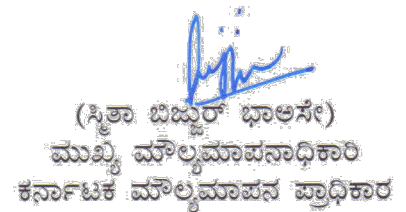 (ಸ್ಮಿತಾ ಬಿಜ್ಜೂರ್ ಭಾಅಸೇ)
ಮುಖ್ಯ ಮೌಲ್ಯಮಾಪನಾಧಿಕಾರಿ
ಕರ್ನಾಟಕ ಮೌಲ್ಯಮಾಪನ ಪ್ರಾಧಿಕಾರ